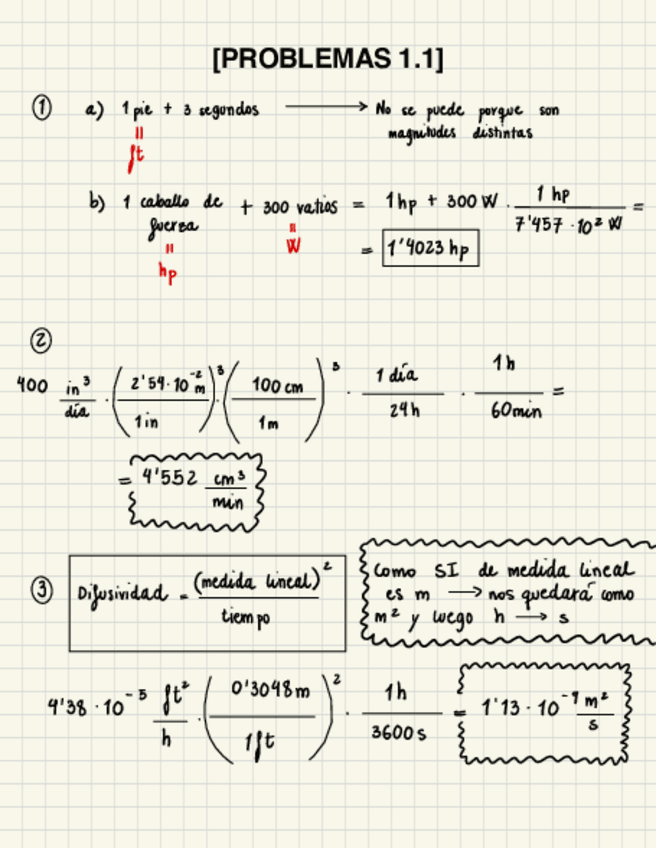 [PROBLEMAS 1.1]
① a) 1 pie + 3 segundos ⟶ No se puede porque son
magnitudes distintas
=
ft
b) 1 caballo de fuerza + 300 vatios = 1 hp + 300 W · 1 hp / 7'457 · 10² W =
= hp
= W
= 1'4023 hp
②
400 in³/día · (2'54·10⁻² m / 1 in)³ · (100 cm / 1 m)³ · 1 día / 24 h · 1 h / 60 min =
= 4'552 cm³/min
③ Difusividad = (medida lineal)² / tiempo
Como SI de medida lineal
es m ⟶ nos quedará como
m² y luego h ⟶ s
4'38 · 10⁻⁵ ft²/h · (0'3048 m / 1 ft)² · 1 h / 3600 s = 1'13 · 10⁻⁹ m²/s